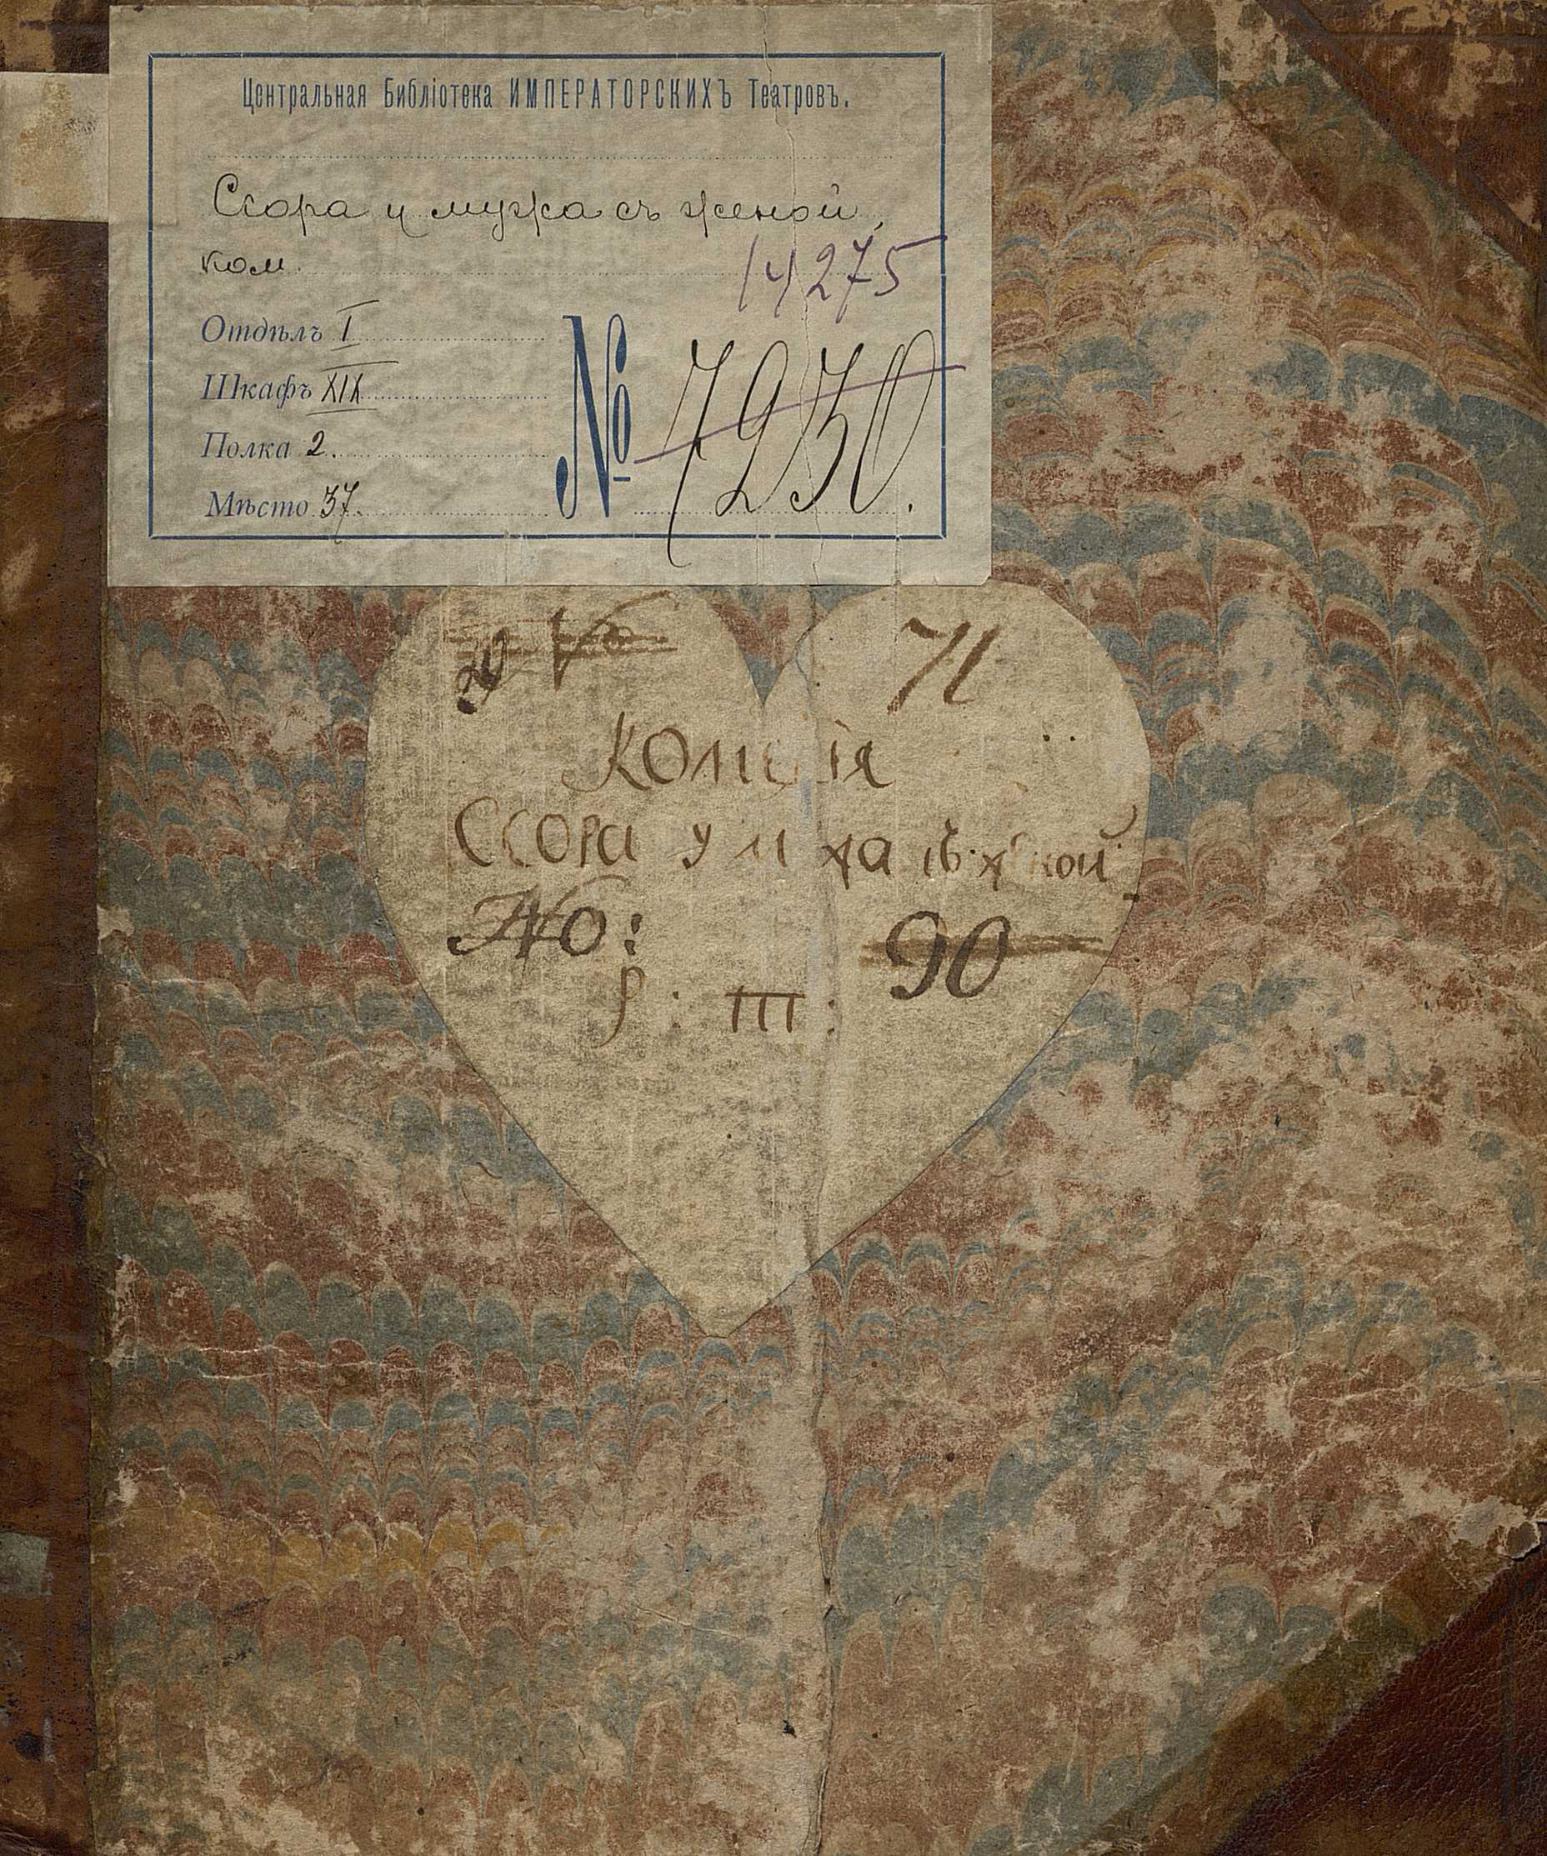 Центральная Библіотека ИМПЕРАТОРСКИХЪ Театровъ.
Ссора у мужа съ женой,
ком.
14275
Отдѣлъ I
Шкафъ XIX
Полка 2.
Мѣсто 37.
№ 7930.
71
Комедія
Ссора у мужа съ женой
No: 90
р: т: